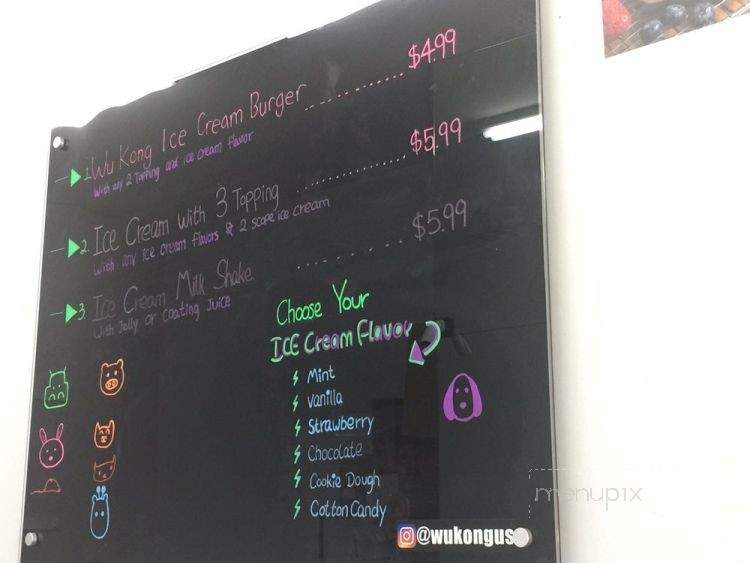 1. Wu Kong Ice Cream Burger ............ $4.99
With any 2 Topping and ice cream flavor
2. Ice Cream with 3 Topping ............ $5.99
With any ice cream flavors & 2 scope ice cream
3. Ice Cream Milk Shake ............ $5.99
With Jelly or Coating Juice
Choose Your
ICE Cream Flavor
Mint
Vanilla
Strawberry
Chocolate
Cookie Dough
Cotton Candy
@wukongus
menupix